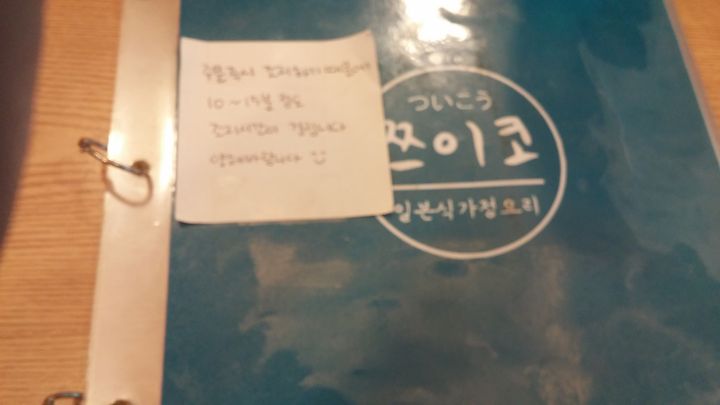 주문즉시 조리하기때문에
10~15분 정도
조리시간이 걸립니다
양해바랍니다
ついこう
쯔이코
일본식가정요리